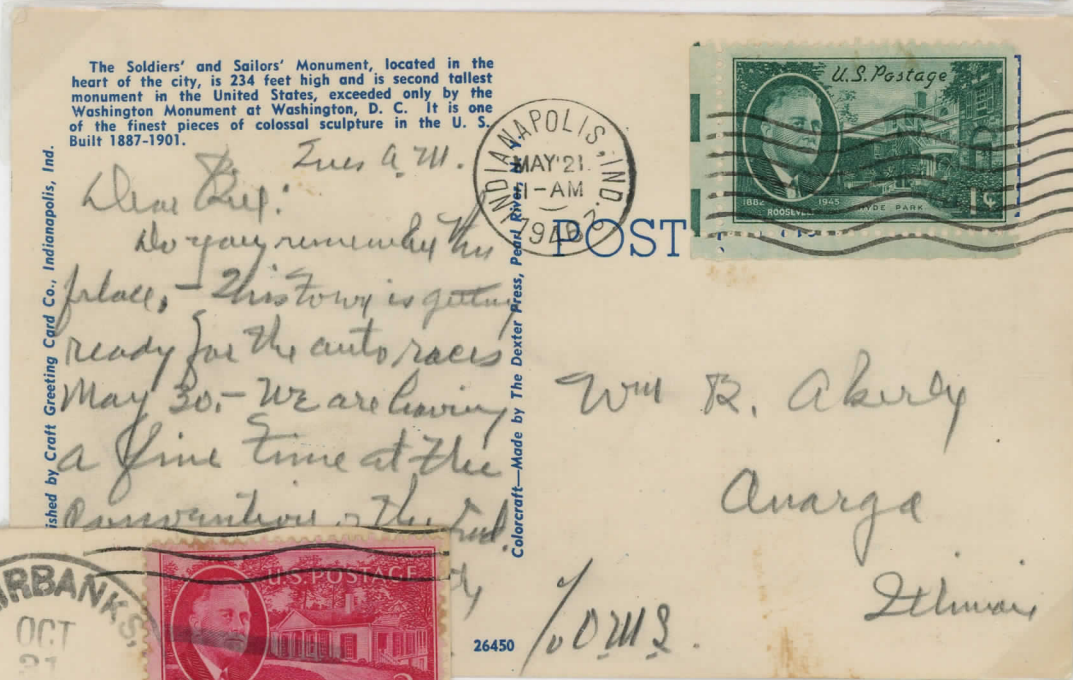 The Soldiers' and Sailors' Monument, located in the
heart of the city, is 234 feet high and is second tallest
monument in the United States, exceeded only by the
Washington Monument at Washington, D. C. It is one
of the finest pieces of colossal sculpture in the U. S.
Built 1887-1901.
Tues A.M.
Dear
Do you remember this
place, - This town is getting
ready for the auto races
May 30. - We are having
a fine time at the
Convention
ished by Craft Greeting Card Co., Indianapolis, Ind.
Colorcraft—Made by The Dexter Press, Pearl River,
INDIANAPOLIS, IND.
MAY 21
11-AM
1946
POST
U.S. Postage
1882 1945
ROOSEVELT
HYDE PARK
1¢
Wm B. Akerly
Onarga
Illinois
26450
RBANKS,
OCT
U.S. POSTAGE